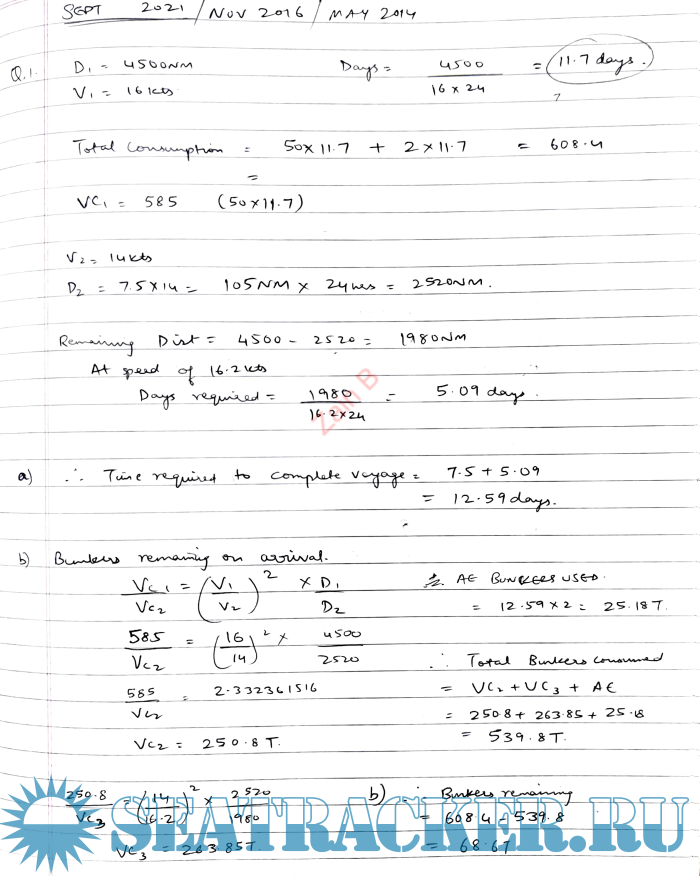 SEPT 2021 / NOV 2016 / MAY 2014
Q.1. D1 = 4500NM Days = 4500 / 16 x 24 = 11.7 days.
V1 = 16 kts
Total Consumption = 50 x 11.7 + 2 x 11.7 = 608.4
=
VC1 = 585 (50 x 11.7)
V2 = 14 kts
D2 = 7.5 x 14 = 105NM x 24 hrs = 2520NM.
Remaining Dist = 4500 - 2520 = 1980NM
At speed of 16.2 kts
Days required = 1980 / 16.2 x 24 = 5.09 days.
Zain B
a) ∴ Time required to complete voyage = 7.5 + 5.09
= 12.59 days.
b) Bunkers remaining on arrival.
VC1 / VC2 = (V1 / V2)^2 x D1 / D2
585 / VC2 = (16 / 14)^2 x 4500 / 2520
585 / VC2 = 2.332361516
VC2 = 250.8 T.
250.8 / VC3 = (14 / 16.2)^2 x 2520 / 980
VC3 = 263.85T.
AE BUNKERS USED.
= 12.59 x 2 = 25.18T.
∴ Total Bunkers consumed
= VC2 + VC3 + AE
= 250.8 + 263.85 + 25.18
= 539.8T.
b) ∴ Bunkers remaining
= 608.4 - 539.8
= 68.6T
SEATRACKER.RU